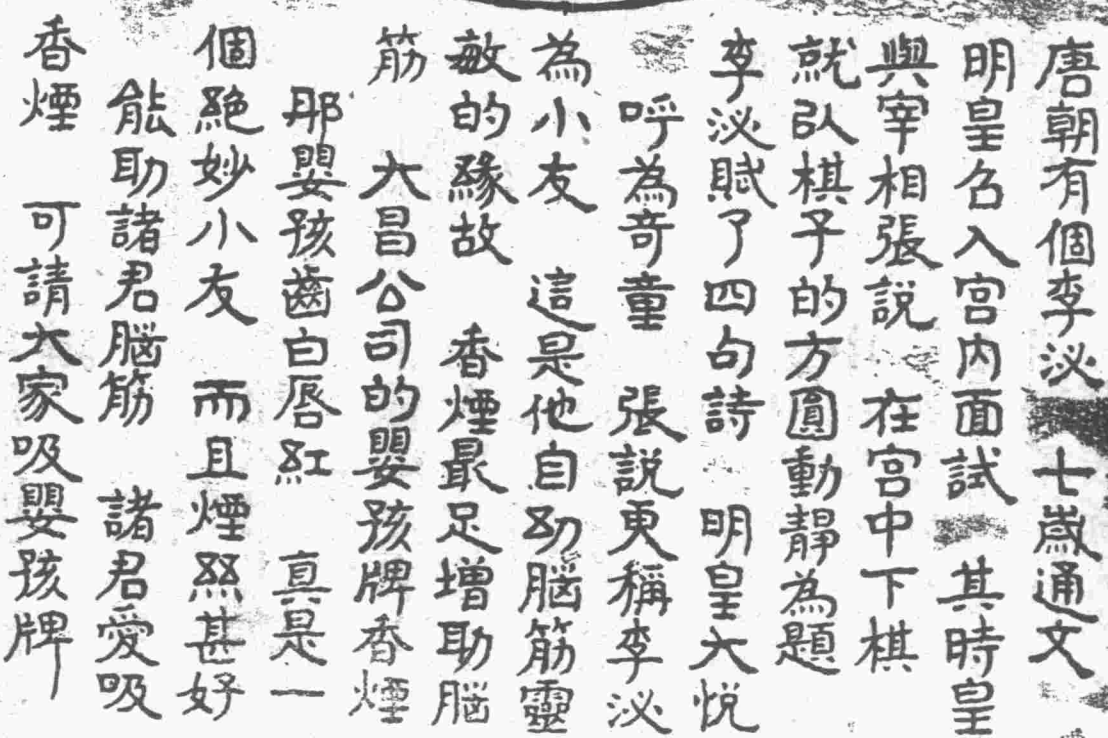 唐朝有個李泌　七歲通文
明皇召入宮內面試　其時皇
與宰相張説　在宮中下棋
就以棋子的方圓動靜為題
李泌賦了四句詩　明皇大悅
呼為奇童　張説更稱李泌
為小友　這是他自幼腦筋靈
敏的緣故　香煙最足增助腦
筋　大昌公司的嬰孩牌香煙
那嬰孩齒白唇紅　真是一
個絕妙小友　而且煙絲甚好
能助諸君腦筋　諸君愛吸
香煙　可請大家吸嬰孩牌